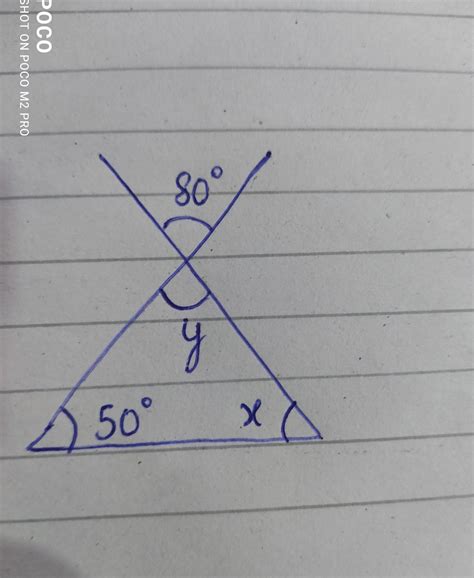 POCO
SHOT ON POCO M2 PRO
80°
y
50°
x